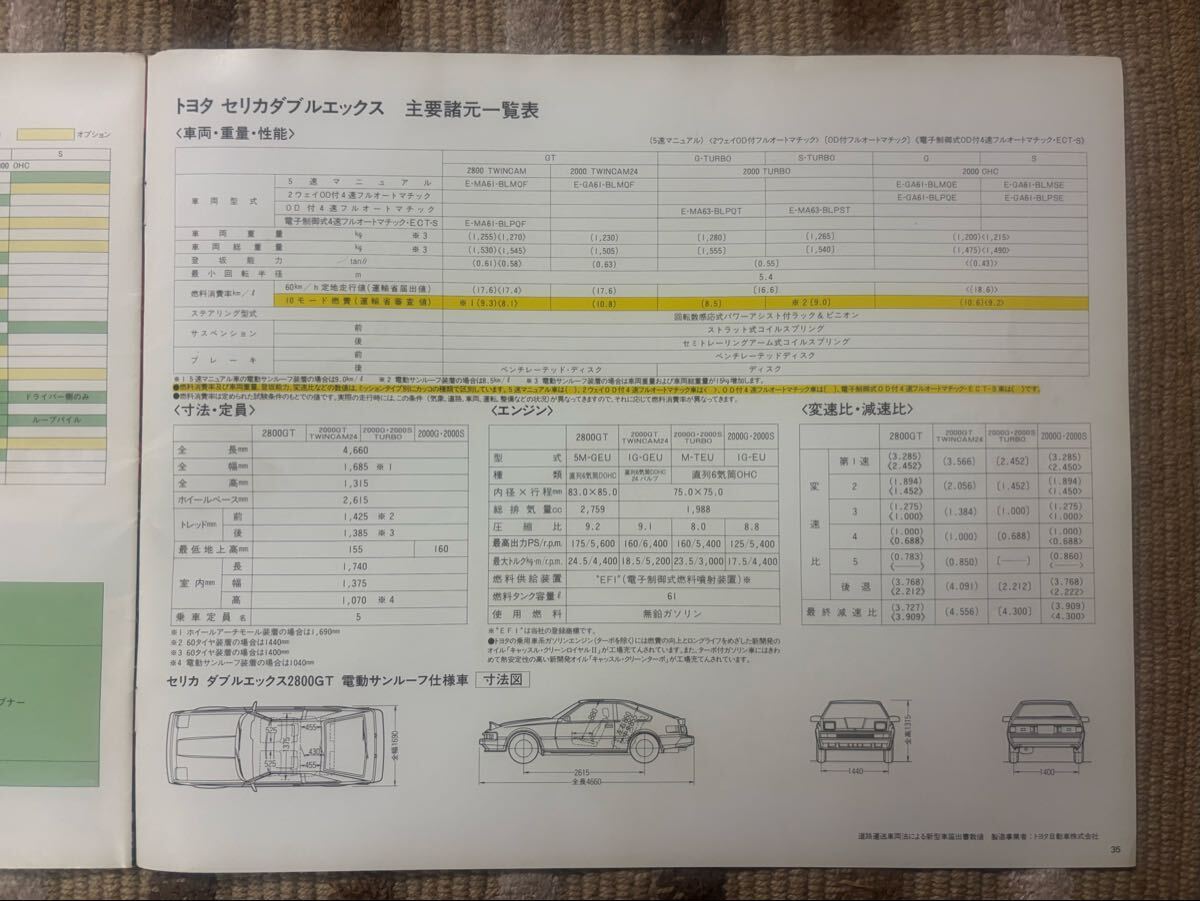 オプション
S
OHC
ドライバー側のみ
ループパイル
プナー
トヨタ セリカダブルエックス 主要諸元一覧表
〈車両・重量・性能〉
(5速マニュアル) 〈2ウェイOD付フルオートマチック〉 [OD付フルオートマチック] 《電子制御式OD付4速フルオートマチック・ECT-S》
GT G-TURBO S-TURBO G S
2800 TWINCAM 2000 TWINCAM24 2000 TURBO 2000 OHC
車両型式 5速マニュアル E-MA61-BLMQF E-GA61-BLMQF E-GA61-BLMQE E-GA61-BLMSE
2ウェイOD付4速フルオートマチック E-GA61-BLPQE E-GA61-BLPSE
OD付4速フルオートマチック E-MA63-BLPQT E-MA63-BLPST
電子制御式4速フルオートマチック・ECT-S E-MA61-BLPQF
車両重量 kg ※3 (1,255)《1,270》 (1,230) [1,280] [1,265] (1,200)〈1,215〉
車両総重量 kg ※3 (1,530)《1,545》 (1,505) [1,555] [1,540] (1,475)〈1,490〉
登坂能力 /tanθ (0.61)《0.58》 (0.63) [0.55] 〈0.43〉
最小回転半径 m 5.4
燃料消費率km/ℓ 60km/h定地走行値(運輸省届出値) (17.6)《17.4》 (17.6) [16.6] 〈18.6〉
10モード燃費(運輸省審査値) ※1(9.3)《8.1》 (10.8) [8.5] ※2[9.0] (10.6)〈9.2〉
ステアリング型式 回転数感応式パワーアシスト付ラック&ピニオン
サスペンション 前 ストラット式コイルスプリング
後 セミトレーリングアーム式コイルスプリング
ブレーキ 前 ベンチレーテッドディスク
後 ベンチレーテッド・ディスク ディスク
※1 5速マニュアル車の電動サンルーフ装着の場合は9.0km/ℓ ※2 電動サンルーフ装着の場合は8.5km/ℓ ※3 電動サンルーフ装着の場合は車両重量および車両総重量が15kg増加します。
●燃料消費率及び車両重量、登坂能力、変速比などの値は、ミッションタイプ別にカッコの種類で区別しています。5速マニュアル車は( )、2ウェイOD付4速フルオートマチック車は〈 〉、OD付4速フルオートマチック車は[ ]、電子制御式OD付4速フルオートマチック・ECT-S車は《 》です。
●燃料消費率は定められた試験条件のもとでの値です。実際の走行時には、この条件(気象、道路、車両、運転、整備などの状況)が異なってきますので、それに応じて燃料消費率が異なってきます。
〈寸法・定員〉
2800GT 2000GT TWINCAM24 2000G・2000S TURBO 2000G・2000S
全長mm 4,660
全幅mm 1,685 ※1
全高mm 1,315
ホイールベースmm 2,615
トレッドmm 前 1,425 ※2
後 1,385 ※3
最低地上高mm 155 160
室内mm 長 1,740
幅 1,375
高 1,070 ※4
乗車定員 名 5
※1 ホイールアーチモール装着の場合は1,690mm
※2 60タイヤ装着の場合は1440mm
※3 60タイヤ装着の場合は1400mm
※4 電動サンルーフ装着の場合は1040mm
〈エンジン〉
2800GT 2000GT TWINCAM24 2000G・2000S TURBO 2000G・2000S
型式 5M-GEU 1G-GEU M-TEU 1G-EU
種類 直列6気筒DOHC 直列6気筒DOHC 24バルブ 直列6気筒OHC
内径×行程mm 83.0×85.0 75.0×75.0
総排気量cc 2,759 1,988
圧縮比 9.2 9.1 8.0 8.8
最高出力PS/r.p.m. 175/5,600 160/6,400 160/5,400 125/5,400
最大トルクkg-m/r.p.m. 24.5/4,400 18.5/5,200 23.5/3,000 17.5/4,400
燃料供給装置 "EFI"(電子制御式燃料噴射装置)※
燃料タンク容量ℓ 61
使用燃料 無鉛ガソリン
※"EFI"は当社の登録商標です。
●トヨタの乗用車系ガソリンエンジン(ターボを除く)には燃費の向上とロングライフをめざした新開発の
オイル「キャッスル・クリーンロイヤルⅡ」が工場充てんされています。また、ターボ付ガソリン車にはきわ
めて熱安定性の高い新開発オイル「キャッスル・クリーンターボ」が工場充てんされています。
〈変速比・減速比〉
2800GT 2000GT TWINCAM24 2000G・2000S TURBO 2000G・2000S
変速比 第1速 (3.285)《2.452》 (3.566) [2.452] (3.285)〈2.450〉
2 (1.894)《1.452》 (2.056) [1.452] (1.894)〈1.450〉
3 (1.275)《1.000》 (1.384) [1.000] (1.275)〈1.000〉
4 (1.000)《0.688》 (1.000) [0.688] (1.000)〈0.688〉
5 (0.783)《——》 (0.850) [——] (0.860)〈——〉
後退 (3.768)《2.212》 (4.091) [2.212] (3.768)〈2.222〉
最終減速比 (3.727)《3.909》 (4.556) [4.300] (3.909)〈4.300〉
セリカ ダブルエックス2800GT 電動サンルーフ仕様車 寸法図
525
525
1375
455
430
455
全幅1690
880
2615
全長4660
1440
全高1315
1400
道路運送車両法による新型車届出書数値 製造事業者:トヨタ自動車株式会社
35